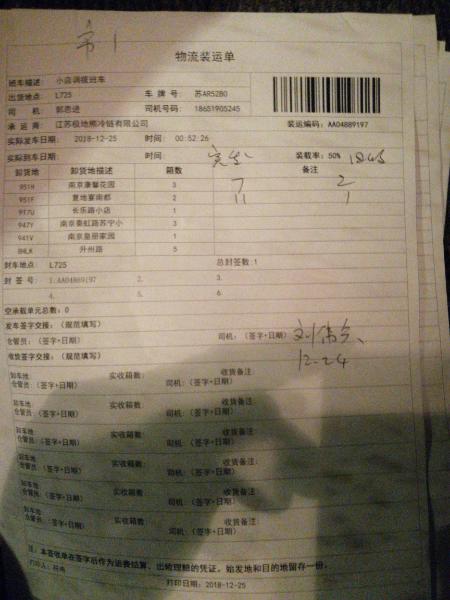 物流装运单
班车描述: 小店调拨班车
出货地点: L725 车 牌 号: 苏AR52B0
司 机: 郭恩进 司机号码: 18651905245
承 运 商: 江苏极地熊冷链有限公司 装运编码: AA04889197
实际发车日期: 2018-12-25 时间: 00:52:26
实际到车日期: 时间: 装载率: 50%
卸货地 卸货地描述 箱数 备注
951H 南京康馨花园 3 7 2
951F 复地宴南都 2 11 1
917U 长乐路小店 1
947Y 南京秦虹路苏宁小 3
941V 南京皇册家园 1
8HLK 升州路 5
封车地点: L725 总封签数:1
封 签 号: 1.AA04889197 2. 3.
4. 5. 6.
空承载单元总数: 0
发车签字交接: (规范填写)
仓管员: (签字+日期) 司机: (签字+日期)
12-24
收货签字交接: (规范填写)
卸车地: 实收箱数: 收货备注:
仓管员: (签字+日期) 司机: (签字+日期)
卸车地: 实收箱数: 收货备注:
仓管员: (签字+日期) 司机: (签字+日期)
卸车地: 实收箱数: 收货备注:
仓管员: (签字+日期) 司机: (签字+日期)
卸车地: 实收箱数: 收货备注:
仓管员: (签字+日期) 司机: (签字+日期)
卸车地: 实收箱数: 收货备注:
仓管员: (签字+日期) 司机: (签字+日期)
卸车地: 实收箱数: 收货备注:
仓管员: (签字+日期) 司机: (签字+日期)
注: 本签收单在签字后作为运费结算、出险理赔的凭证。始发地和目的地留存一份。
打印人:
打印日期: 2018-12-25